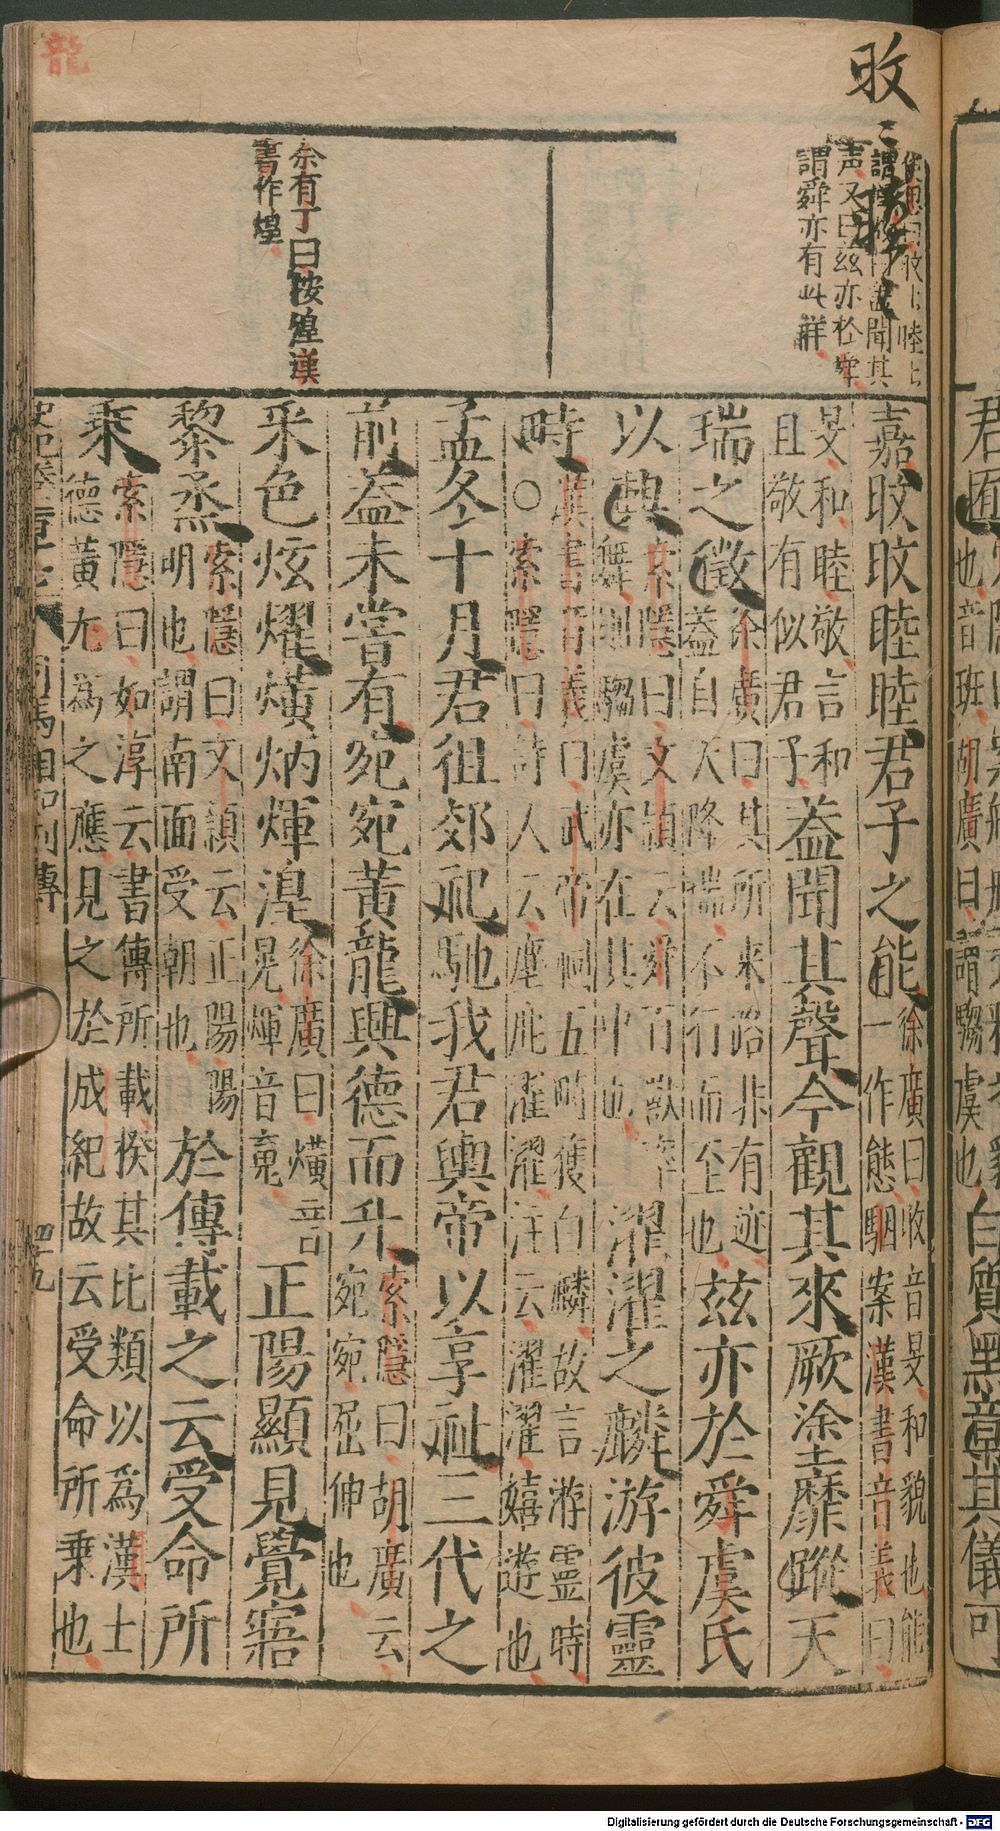 龍
旼
謂舜亦有此祥
余有丁曰按煌漢
書作熿
嘉旼旼睦睦君子之能徐廣曰旼音旻和貌也能
一作態駰案漢書音義曰
旻和睦敬言和
且敬有似君子蓋聞其聲今觀其來厥塗靡蹤天
瑞之徵徐廣曰其所來路非有迹
蓋自天降瑞不行而至也茲亦於舜虞氏
以興索隱曰文穎云舜百獸率
舞則騶虞亦在其中也濯濯之麟游彼靈
畤漢書音義曰武帝祠五畤獲白麟故言游靈畤
畤○索隱曰詩人云麀鹿濯濯注云濯濯嬉遊也
孟冬十月君徂郊祀馳我君輿帝以享祉三代之
前蓋未嘗有宛宛黃龍興德而升索隱曰胡廣云
宛宛屈伸也
采色炫燿熿炳煇湟徐廣曰熿音
晃煇音䰟正陽顯見覺寤
黎烝索隱曰文穎云正陽陽
明也謂南面受朝也於傳載之云受命所
乘索隱曰如淳云書傳所載揆其比類以為漢士
德黃尨為之應見之於成紀故云受命所乘也
司馬相如列傳
四十九
白質黑章其儀可
Digitalisierung gefördert durch die Deutsche Forschungsgemeinschaft - DFG